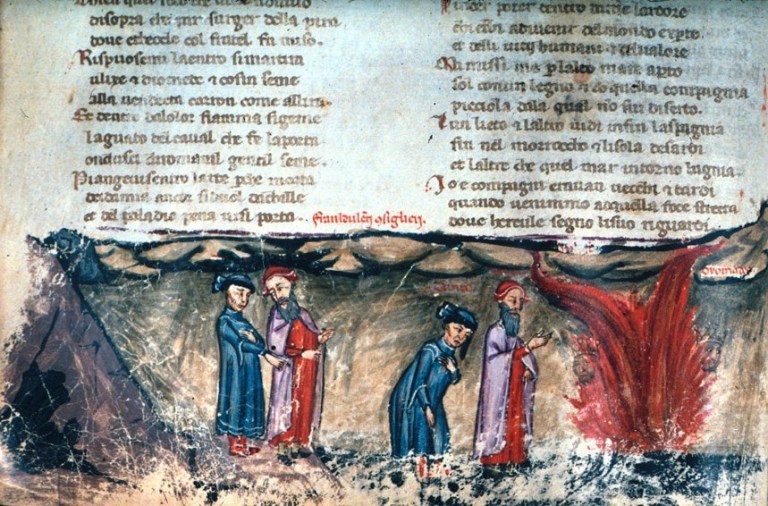 disopra che par surger della pira
doue etheocle col fratel fu miso.
Rispuosemi laentro simartira
ulixe 7 diomede 7 cosi inseme
alla uendecta corron come allira.
Et dentro dalor fiamma sigeme
laguato del caual che fe laporta
gentil seme.
Piangeuisentro larte perche morta
deidamia ancor siduol dachille
et del paladio pena uisi porta.
poter dentro dame lardore
adiuenir delmondo experto
et delli uitij humani 7 del ualore
Ma missi me per lalto mare apto
sol conun legno 7 co quella compagnia
picciola dala qual non fui diserto.
Lun lito 7 laltro uidi infin laspagnia
fin nel morroccho 7 lisola desardi
et laltre che quel mar intorno bagnia.
Io e compagni erauan uecchi 7 tardi
quando uenimmo aquella foce stretta
doue hercule segno lisuo riguardi